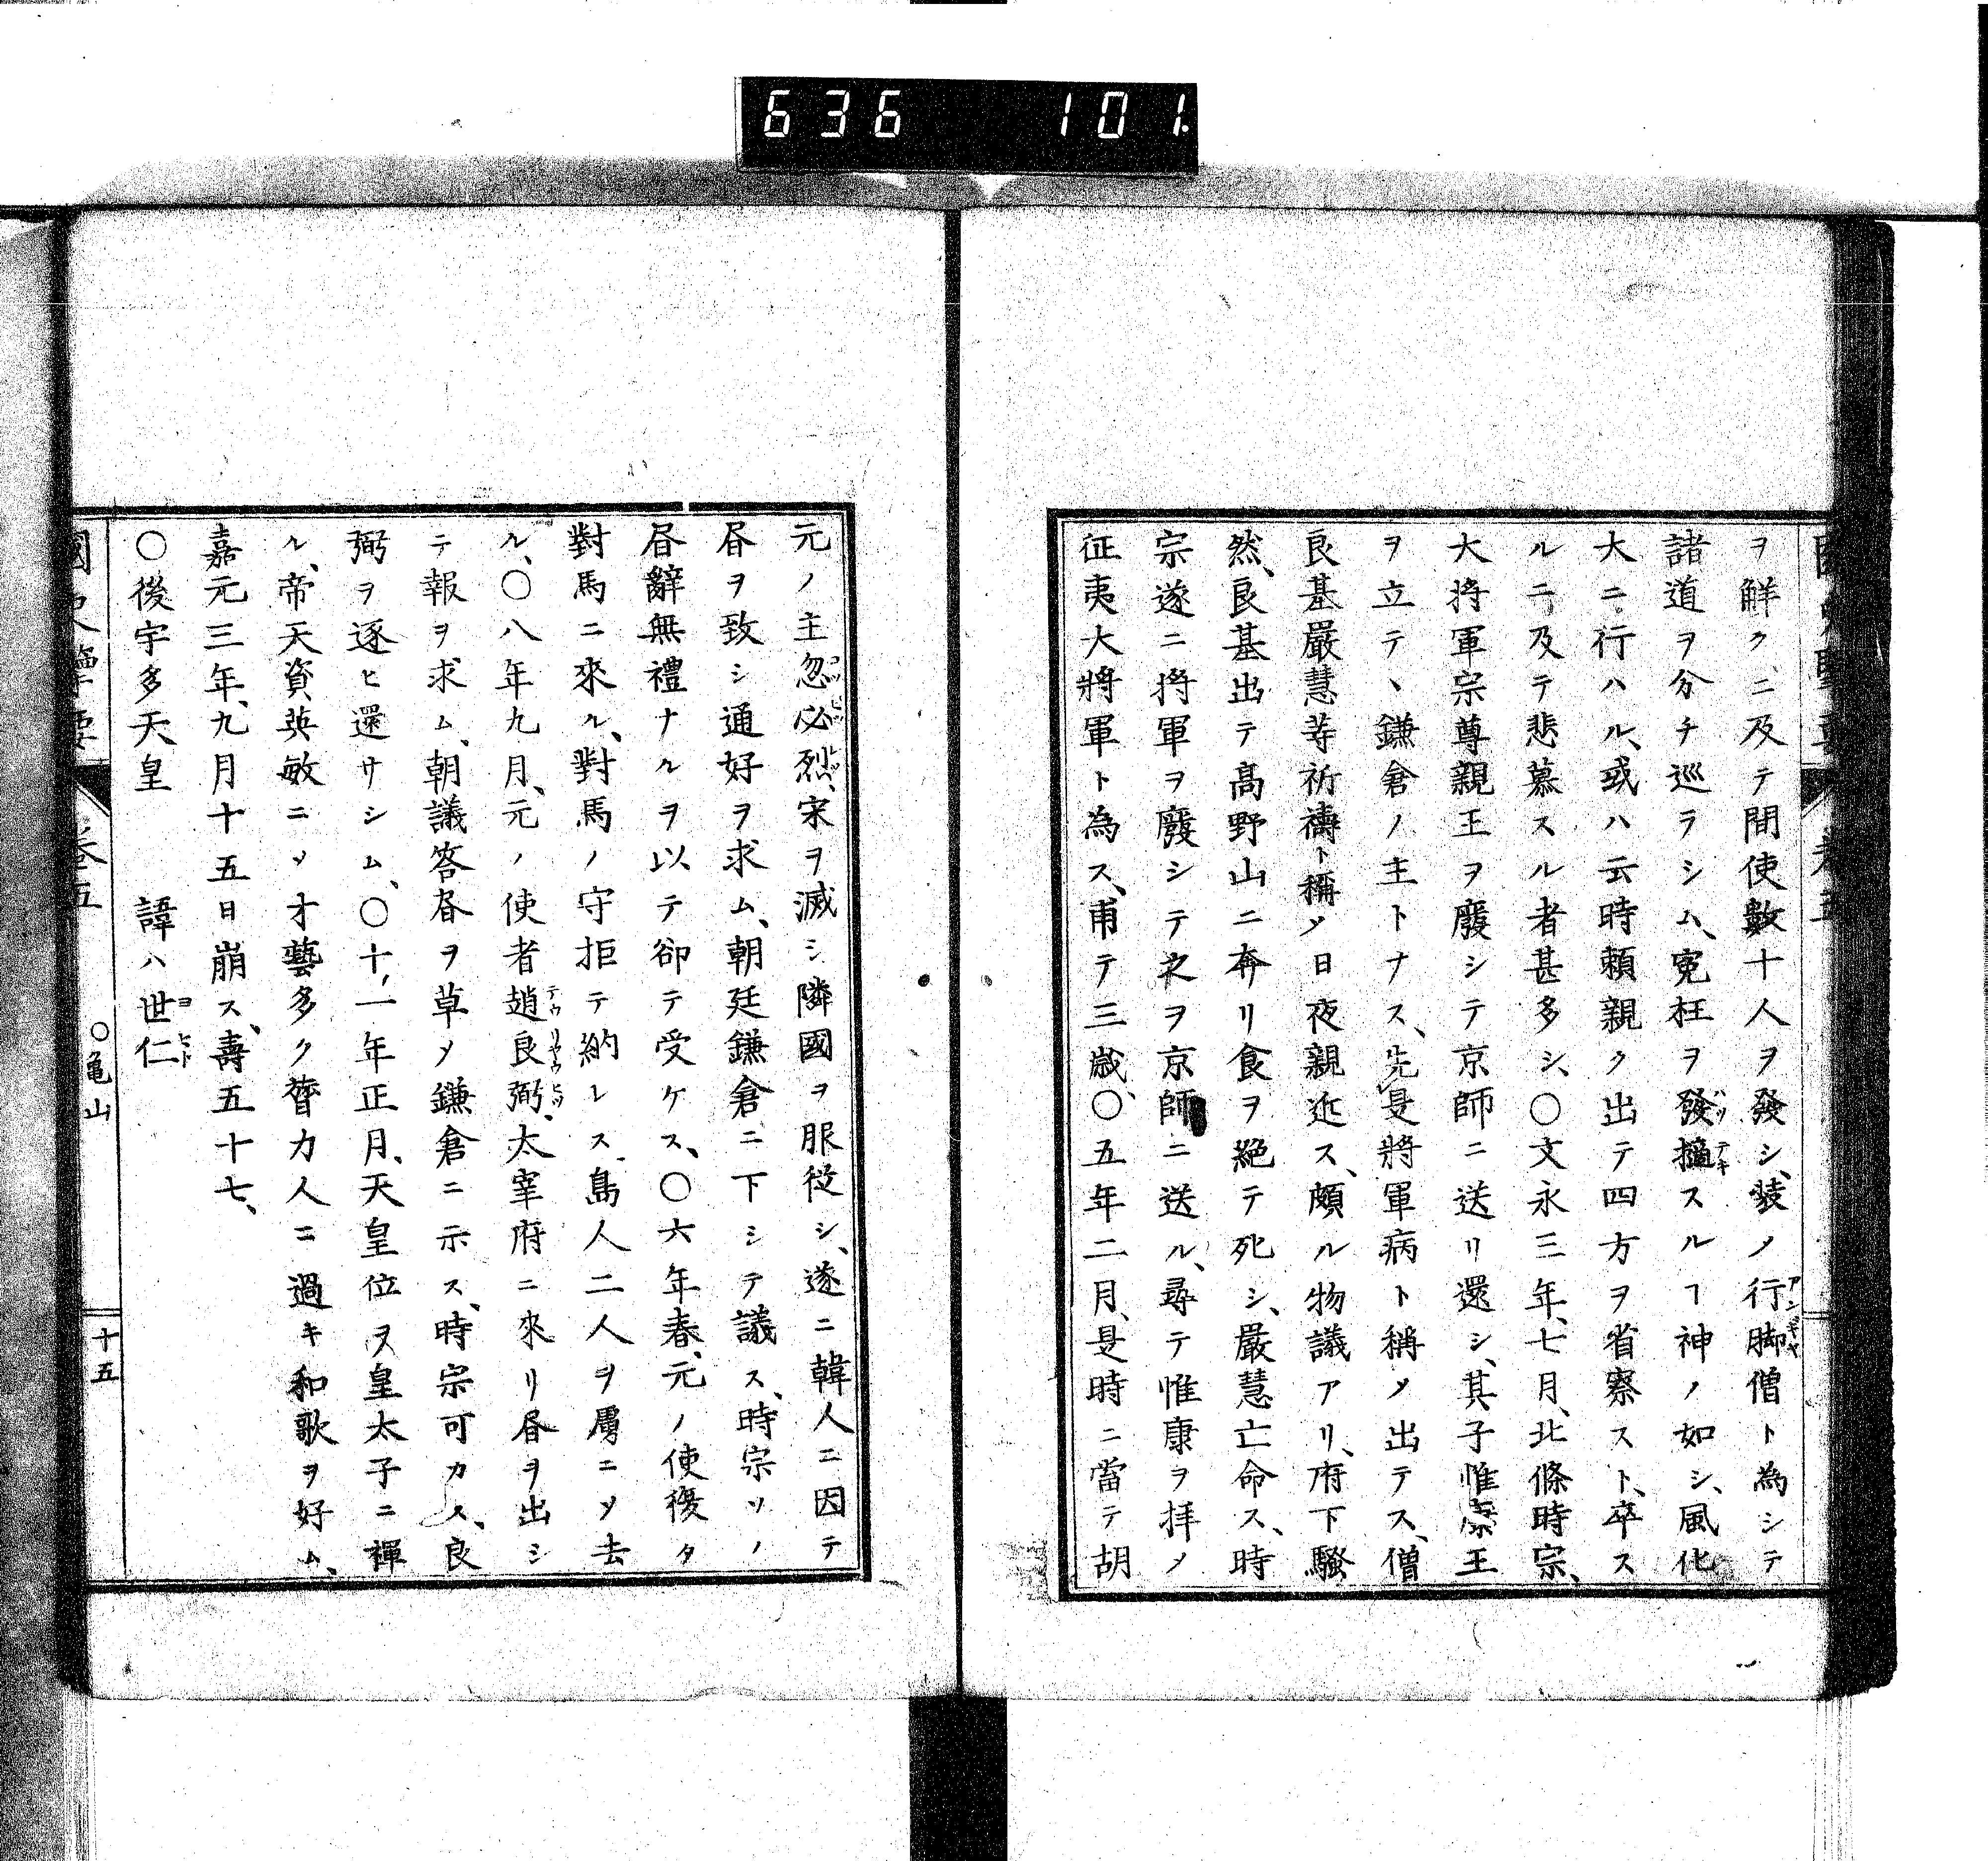 636 101.
ヲ解クニ及テ間使數十人ヲ發シ、装ノ行脚僧ト為シテ
諸道ヲ分チ巡ラシム、寃枉ヲ發擿スルヿ神ノ如シ、風化
大ニ行ハル、或ハ云時頼親ク出テ四方ヲ省察スト、卒ス
ルニ及テ悲慕スル者甚多シ、〇文永三年、七月、北條時宗、
大将軍宗尊親王ヲ廢シテ京師ニ送リ還シ、其子惟康王
ヲ立テ、鎌倉ノ主トナス、先是將軍病ト稱メ出テス、僧
良基嚴慧䓁祈禱ト稱メ日夜親近ス、頗ル物議アリ、府下騷
然、良基出テ高野山ニ奔リ食ヲ絶テ死シ、嚴慧亡命ス、時
宗遂ニ将軍ヲ廢シテ之ヲ京師ニ送ル、尋テ惟康ヲ拝メ
征夷大將軍ト為ス、甫テ三歳、〇五年二月、是時ニ當テ胡
元ノ主忽必烈、宋ヲ滅シ隣國ヲ服從シ、遂ニ韓人ニ因テ
書ヲ致シ通好ヲ求ム、朝廷鎌倉ニ下シテ議ス、時宗ソノ
書辭無禮ナルヲ以テ卻テ受ケス、〇六年春、元ノ使復タ
對馬ニ來ル、對馬ノ守拒テ納レス、島人二人ヲ虜ニメ去
ル、〇八年九月、元ノ使者趙良弼、太宰府ニ來リ書ヲ出シ
テ報ヲ求ム、朝議答書ヲ草メ鎌倉ニ示ス、時宗可カス、良
弼ヲ逐ヒ還サシム、〇十一年正月、天皇位ヲ皇太子ニ禪
ル、帝天資英敏ニメ才藝多ク膂力人ニ過キ和歌ヲ好ム、
嘉元三年、九月十五日崩ス、壽五十七、
〇後宇多天皇 諱ハ世仁
卷五 〇龜山 十五